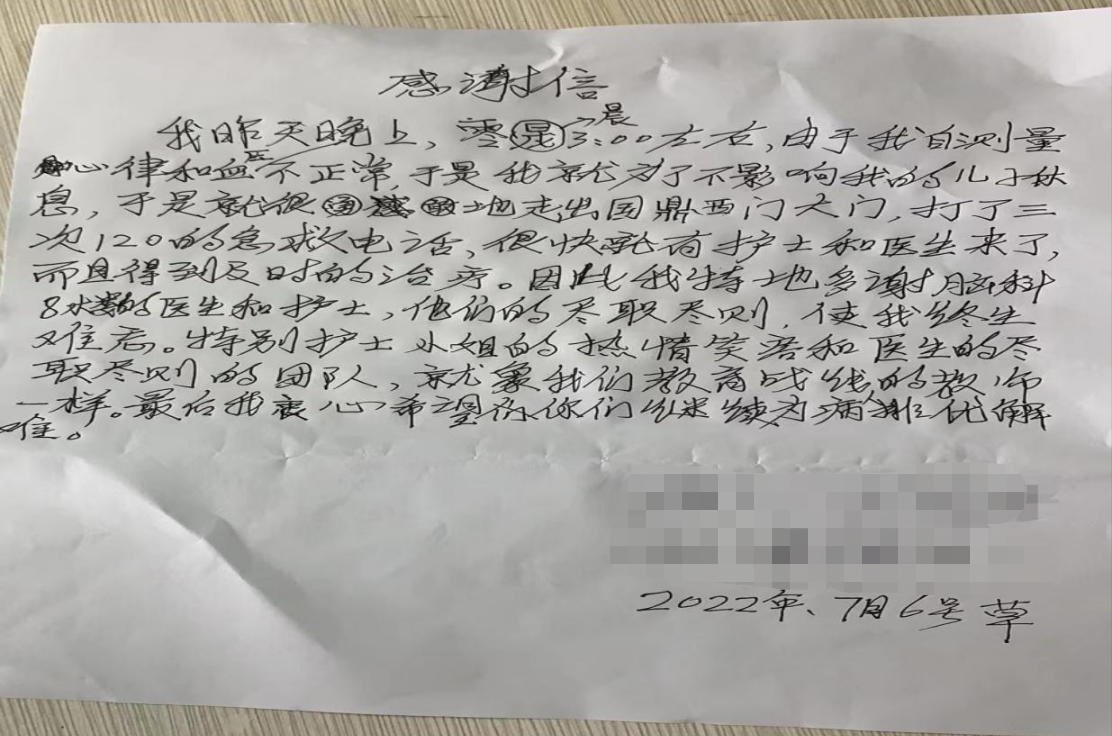 感谢信
我昨天晚上，零晨3:00左右，由于我自测量
心律和血压不正常，于是我就为了不影响我的儿子休
息，于是就很地走出国鼎西门大门，打了三
次120的急救电话，很快就有护士和医生来了，
而且得到及时的治疗。因此我特地多谢脑科
8水数的医生和护士，他们的尽职尽则，使我终生
难忘。特别护士小姐的热情笑容和医生的尽
职尽则的团队，就象我们教育战线的教师
一样。最后我衷心希望你们继续为病人排优解
难。
2022年、7月6号草